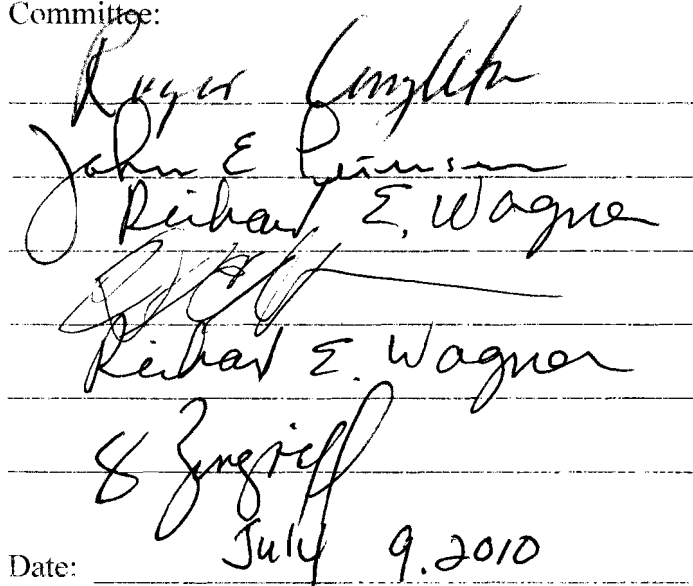 Committee:
Roger Congleton
John E
Richard E. Wagner
Richard E. Wagner
Date: July 9. 2010